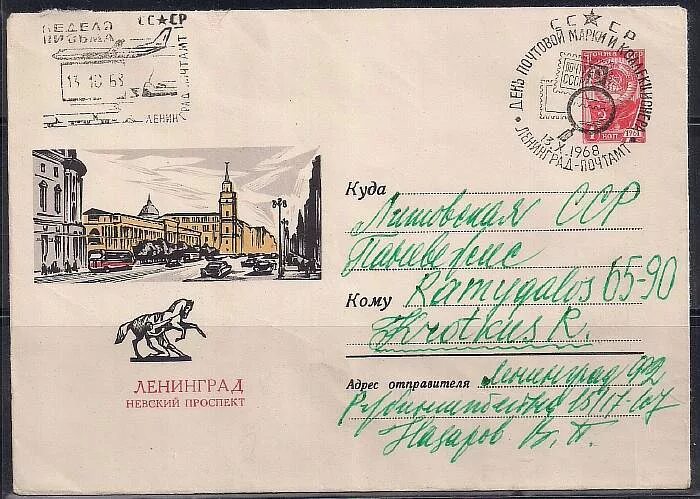 СССР
НЕДЕЛЯ
ПИСЬМА
13 10 68
ЛЕНИНГРАД ПОЧТАМТ
СССР
ДЕНЬ ПОЧТОВОЙ МАРКИ И КОЛЛЕКЦИОНЕРА
ПОЧТА
СССР
13.X.1968
ЛЕНИНГРАД-ПОЧТАМТ
ПОЧТА
1961
4 КОП
Куда
Литовская ССР
Паневежис
Ramygalos 65-90
Кому
Krotkus R.
Адрес отправителя Ленинград
15/17-107
Назаров В. П.
ЛЕНИНГРАД
НЕВСКИЙ ПРОСПЕКТ